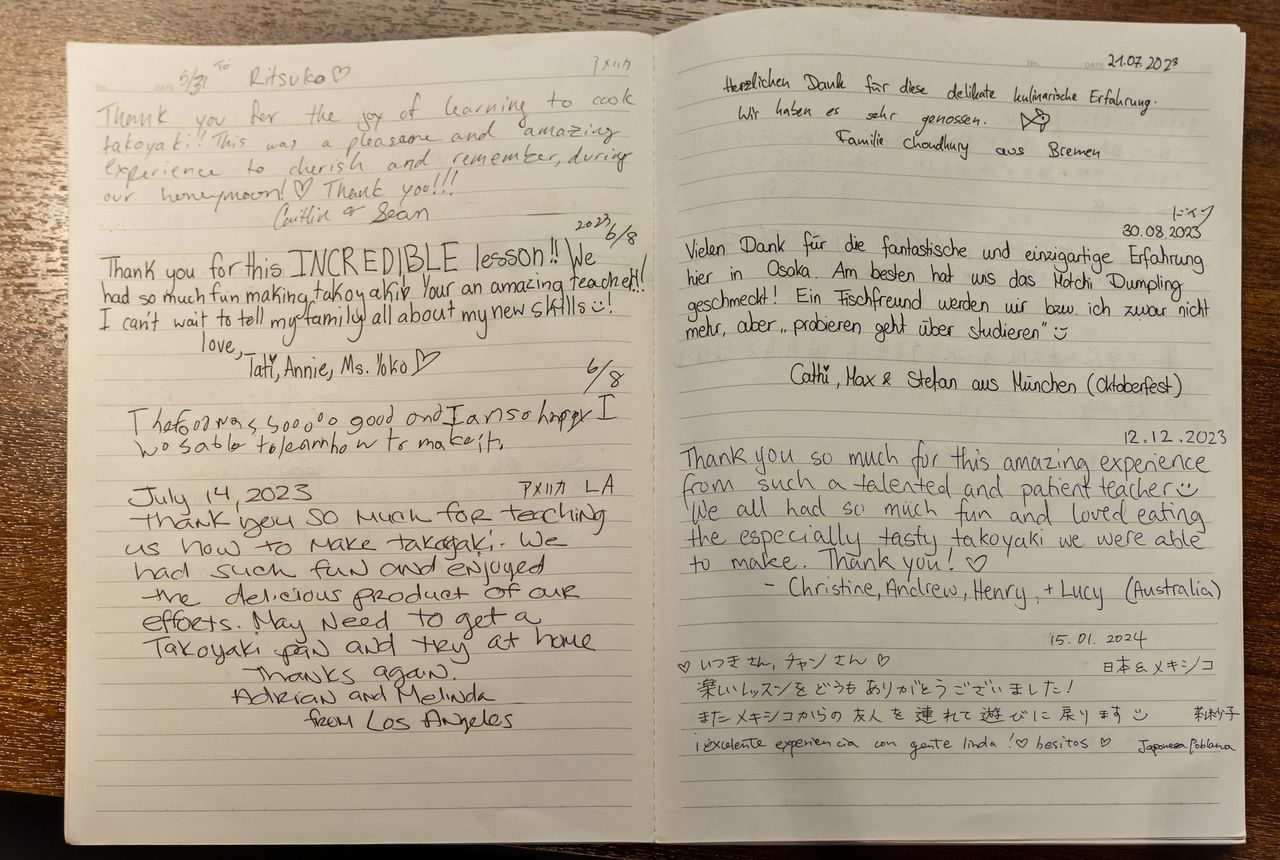 5/31 To Ritsuko♡ アメリカ
Thank you for the joy of learning to cook
takoyaki! This was a pleasant and amazing
experience to cherish and remember, during
our honeymoon!♡ Thank you!!!
Caitlin & Sean
2023 6/8
Thank you for this INCREDIBLE lesson!! We
had so much fun making takoyaki♡ Your an amazing teacher!!
I can't wait to tell my family all about my new skills☺!
love,
Tati, Annie, Ms. Yoko ♡
6/8
The food was sooooo good and I am so happy I
was able to learn how to make it.
July 14, 2023 アメリカ LA
Thank you so much for teaching
us how to make takoyaki. We
had such fun and enjoyed
the delicious product of our
efforts. May need to get a
Takoyaki pan and try at home
Thanks again.
Adrian and Melinda
from Los Angeles
No. DATE 21.07.2023
Herzlichen Dank für diese delikate kulinarische Erfahrung.
Wir haben es sehr genossen.
Familie Choudhury aus Bremen
ドイツ
30.08.2023
Vielen Dank für die fantastische und einzigartige Erfahrung
hier in Osaka. Am besten hat uns das Motchi Dumpling
geschmeckt! Ein Fischfreund werden wir bzw. ich zwar nicht
mehr, aber „probieren geht über studieren" ☺
Cathi, Max & Stefan aus München (Oktoberfest)
12.12.2023
Thank you so much for this amazing experience
from such a talented and patient teacher☺
We all had so much fun and loved eating
the especially tasty takoyaki we were able
to make. Thank you! ♡
- Christine, Andrew, Henry, + Lucy (Australia)
15.01.2024
♡ いつき さん, チャン さん ♡ 日本&メキシコ
楽しいレッスンをどうもありがとうございました!
またメキシコからの友人を連れて遊びに戻ります☺
¡excelente experiencia con gente linda!♡ besitos ♡ Japonesa Poblana